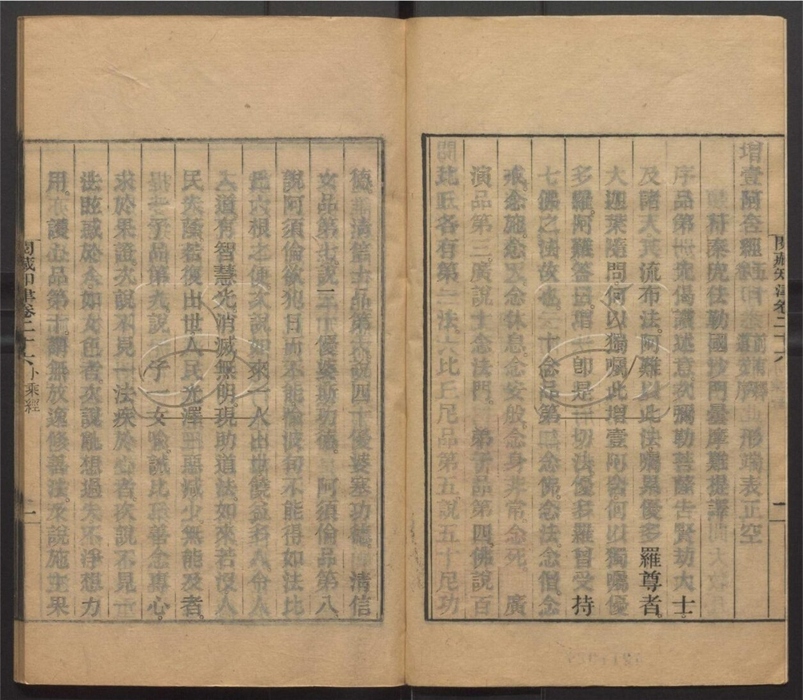 增壹阿含經
苻秦兜佉勒國沙門曇摩難提譯
序品第一先偈讚述意次彌勒菩薩告賢劫大士
及諸天共流布法阿難以此法囑累優多羅尊者
大迦葉隨問何以獨囑此增壹阿含何以獨囑優
多羅阿難答曰增一即是一切法優多羅曾受持
七佛之法故也 十念品第二念佛念法念僧念
戒念施念天念休息念安般念身非常念死 廣
演品第三廣說十念法門 弟子品第四佛說百
比丘各有第一法 比丘尼品第五說五十尼功
德 清信士品第六說四十優婆塞功德 清信
女品第七說三十優婆斯功德 阿須倫品第八
說阿須倫欲犯日而不能惱波旬不能得如法比
丘六根之便次說如來一人出世饒益多人令人
入道有智慧光消滅無明現助道法如來若沒人
民失蔭若復出世人民光澤三惡減少無能及者
一子品第九說一子一女喻誡比丘善念專心
求於果證次說不見一法疾於心者次說不見一
法眩惑於人如女色者次說亂想過失不淨想力
用 護心品第十謂無放逸修善法次說施主果
閱藏知津卷二十六
閱藏知津卷二十六 小乘經 一